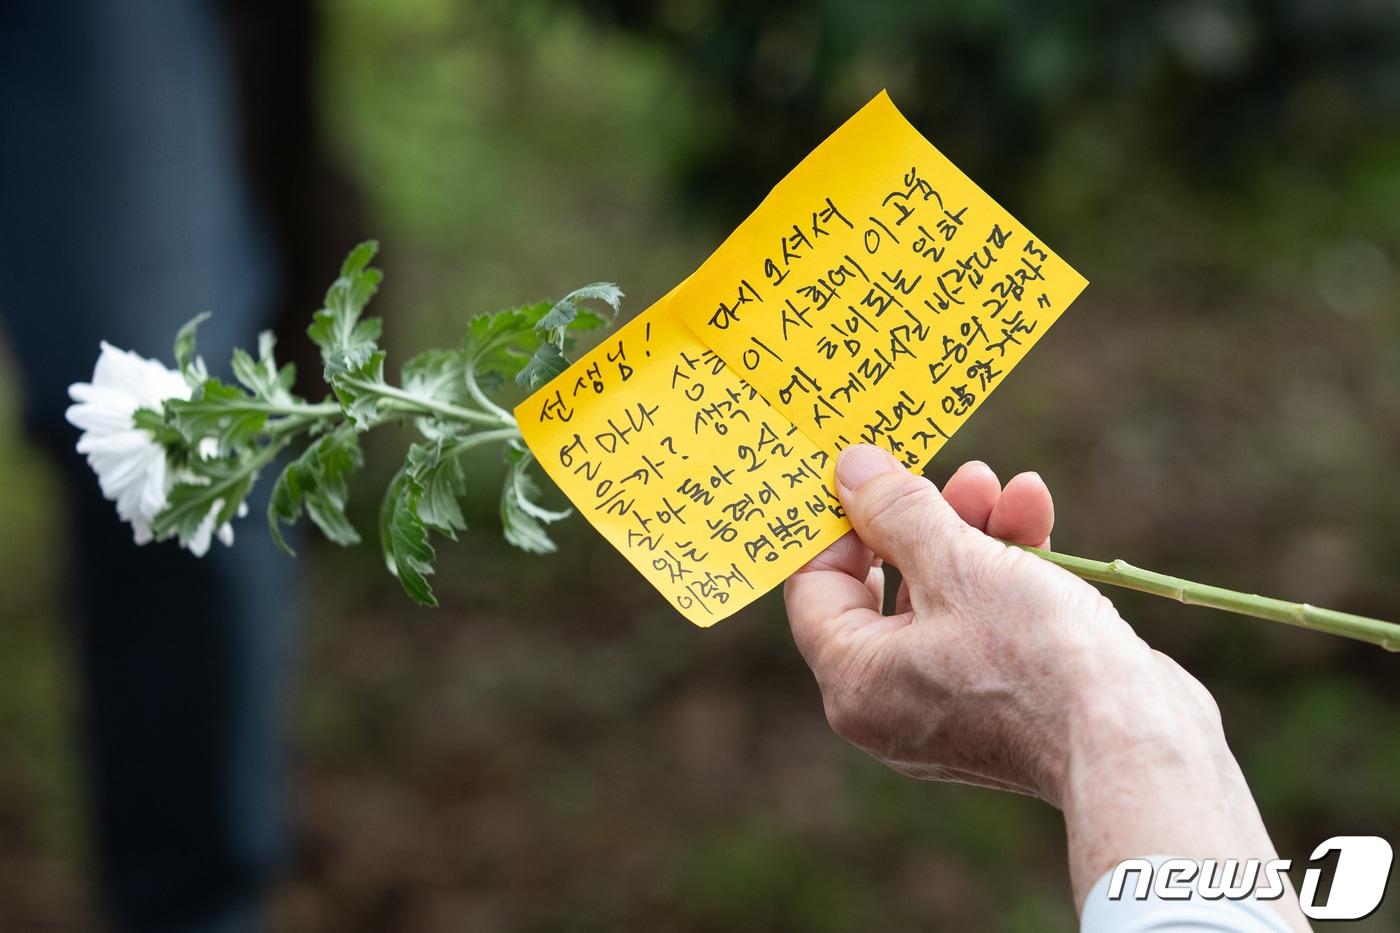 선생님!
얼마나 상
을까? 생각
살아 돌아 오실
있는 능력이 제
이렇게 명복을
다시 오셔셔
이 사회에 이 교육
에 힘이 되는 일 하
시게 되시길 바랍니다
전엔 스승의 그림자도
밟지 않았거늘"
news1